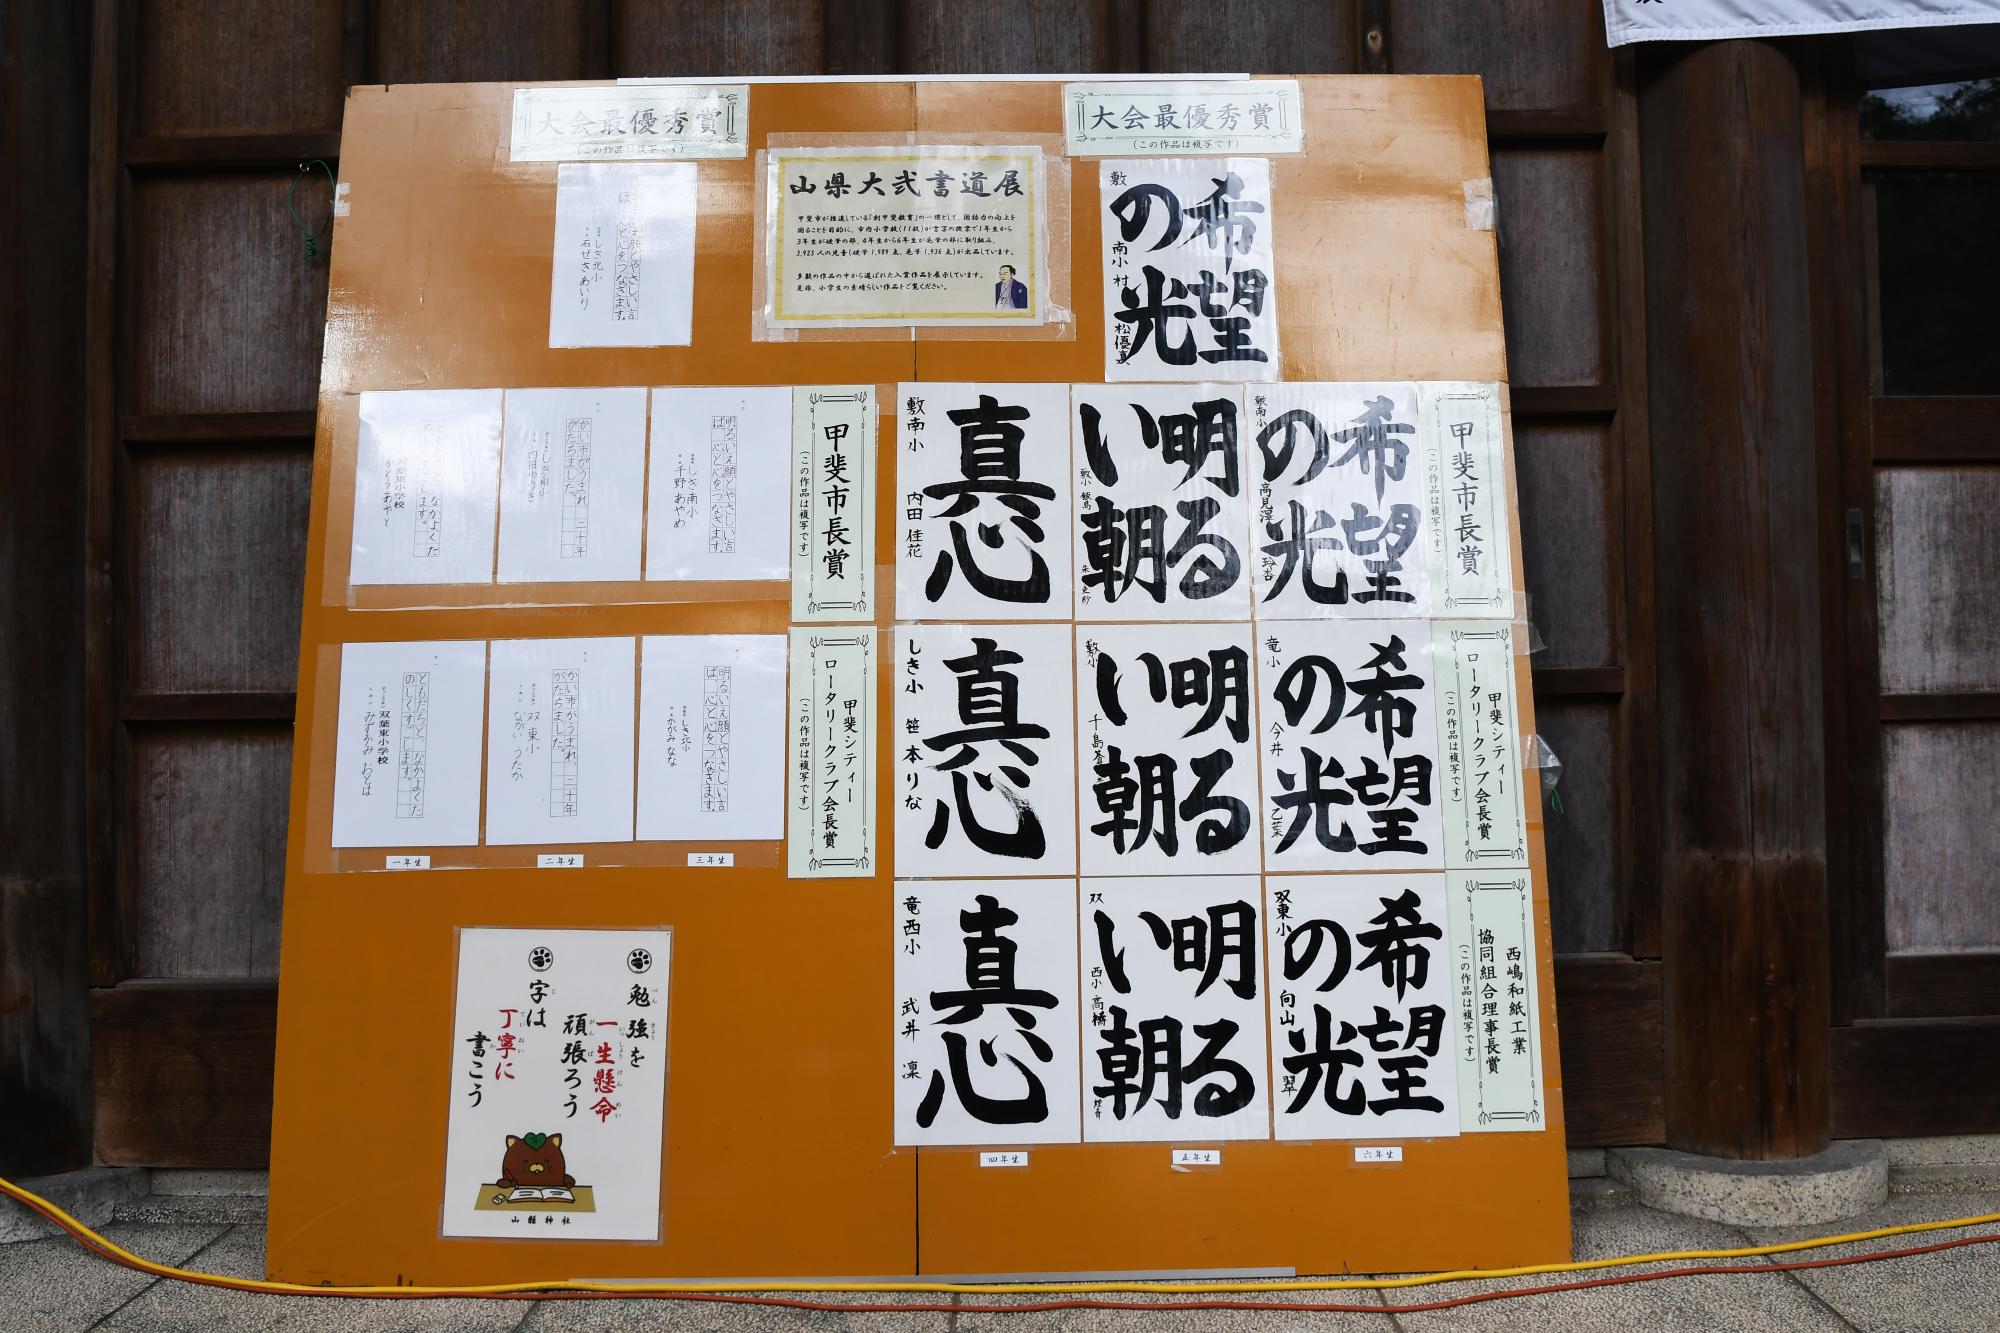 大会最優秀賞
(この作品は複写です)
大会最優秀賞
(この作品は複写です)
山県大弐書道展
甲斐市が推進している「創甲斐教育」の一環として、国語力の向上を
図ることを目的に、市内小学校(11校)が書写の授業で1年生から
3年生が硬筆の部、4年生から6年生が毛筆の部に取り組み、
3,925人の児童(硬筆1,989点、毛筆1,936点)が出品しています。
多数の作品の中から選ばれた入賞作品を展示しています。
是非、小学生の素晴らしい作品をご覧ください。
しき北小
石ぜきあいり
希望
の光
敷南小
村松優真
甲斐市長賞
(この作品は複写です)
明るいえ顔とやさしい言
ば、心と心をつなぎます。
しき南小
千野あやめ
かい市がうまれ、二十年
がたちました。
しき南小
内田ゆうき
ともだちと、なかよくた
のしくすごします。
双葉東小学校
かとうあやと
甲斐市長賞
(この作品は複写です)
希望
の光
敷南小
明る
い朝
敷小
飯島
真心
敷南小
内田佳花
甲斐シティー
ロータリークラブ会長賞
(この作品は複写です)
明るいえ顔とやさしい言
ば、心と心をつなぎます。
しき北小
かがみなな
かい市がうまれ、二十年
がたちました。
双東小
ながいうたか
ともだちと、なかよくた
のしくすごします。
双葉東小学校
みずかみおとは
甲斐シティー
ロータリークラブ会長賞
(この作品は複写です)
希望
の光
竜小
今井乙葉
明る
い朝
敷小
真心
しき小
笹本りな
一年生
二年生
三年生
西嶋和紙工業
協同組合理事長賞
(この作品は複写です)
希望
の光
双東小
向山翠
明る
い朝
双西小
高橋
真心
竜西小
武井凛
四年生
五年生
六年生
勉強を
一生懸命
頑張ろう
字は
丁寧に
書こう
山縣神社